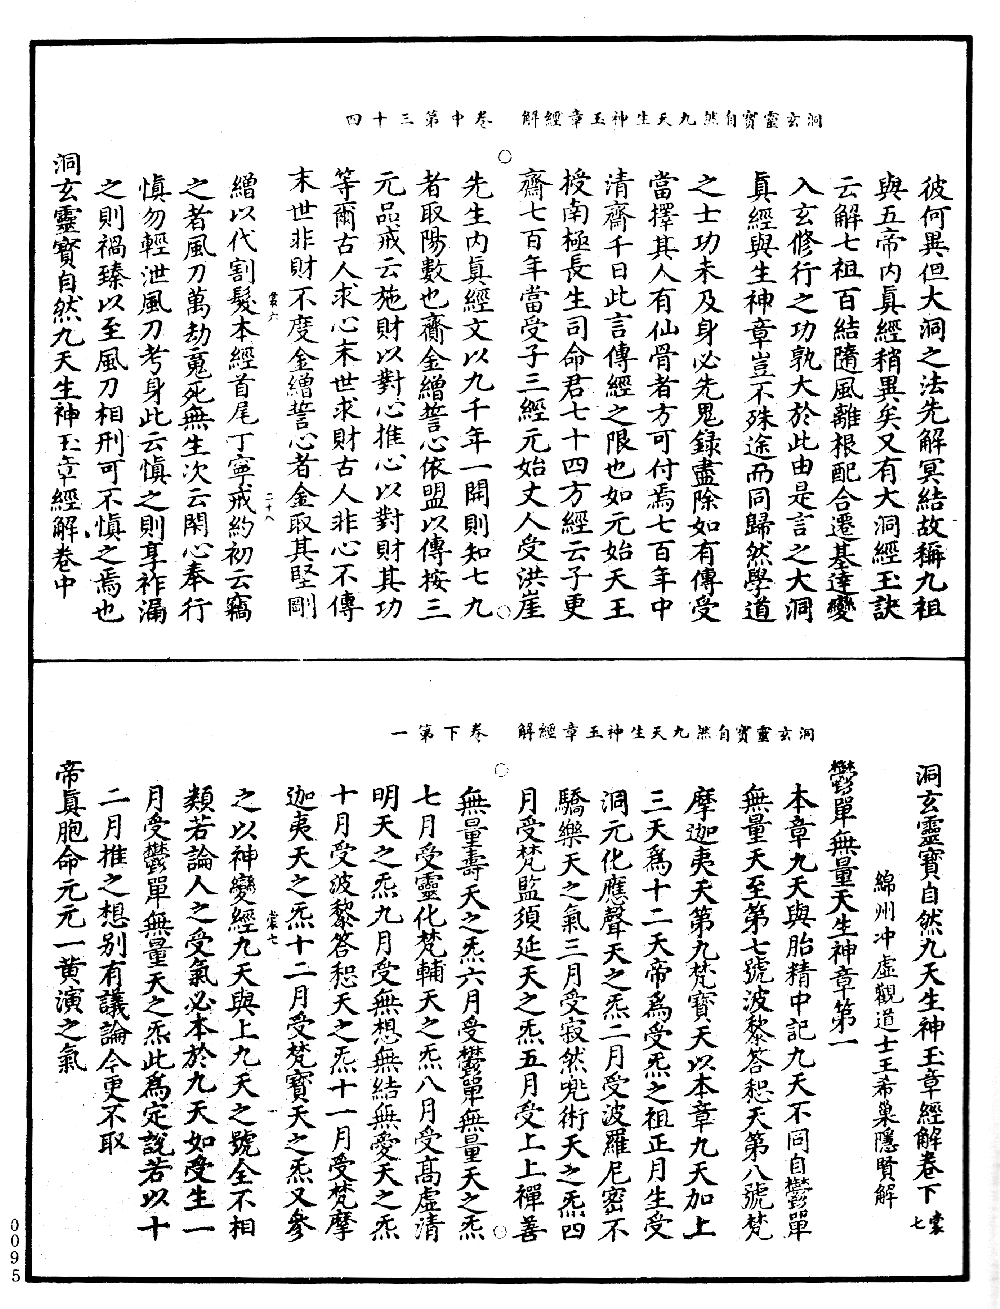 洞玄靈寶自然九天生神玉章經解　卷中第三十四
彼何異但大洞之法先解冥結故稱九祖
與五帝內真經稍異矣又有大洞經玉訣
云解七祖百結隨風離根配合遷基達變
入玄修行之功孰大於此由是言之大洞
真經與生神章豈不殊途而同歸然學道
之士功未及身必先鬼錄盡除如有傳受
當擇其人有仙骨者方可付焉七百年中
清齋千日此言傳經之限也如元始天王
授南極長生司命君七十四方經云子更
齋七百年當受子三經元始丈人受洪崖
先生內真經文以九千年一開則知七九
者取陽數也齎金繒誓心依盟以傳按三
元品戒云施財以對心推心以對財其功
等爾古人求心末世求財古人非心不傳
末世非財不度金繒誓心者金取其堅剛
繒以代割髮本經首尾丁寧戒約初云竊
之者風刀萬劫䰟死無生次云閑心奉行
慎勿輕泄風刀考身此云慎之則享祚漏
之則禍臻以至風刀相刑可不慎之焉也
洞玄靈寶自然九天生神玉章經解卷中
裳六
二十八
洞玄靈寶自然九天生神玉章經解　卷下第一
洞玄靈寶自然九天生神玉章經解卷下
裳七
綿州冲虛觀道士王希巢隱賢解
鬱單無量天生神章第一
本章九天與胎精中記九天不同自鬱單
無量天至第七號波黎答惒天第八號梵
摩迦夷天第九梵寶天以本章九天加上
三天爲十二天帝爲受炁之祖正月生受
洞元化應聲天之炁二月受波羅尼密不
驕樂天之氣三月受寂然兜術天之炁四
月受梵監須延天之炁五月受上上禪善
無量壽天之炁六月受鬱單無量天之炁
七月受靈化梵輔天之炁八月受高虛清
明天之炁九月受無想無結無愛天之炁
十月受波黎答惒天之炁十一月受梵摩
迦夷天之炁十二月受梵寶天之炁又參
之以神變經九天與上九天之號全不相
類若論人之受氣必本於九天如受生一
月受鬱單無量天之炁此爲定說若以十
二月推之想別有議論今更不取
帝真胞命元元一黃演之氣
裳七
一
0095